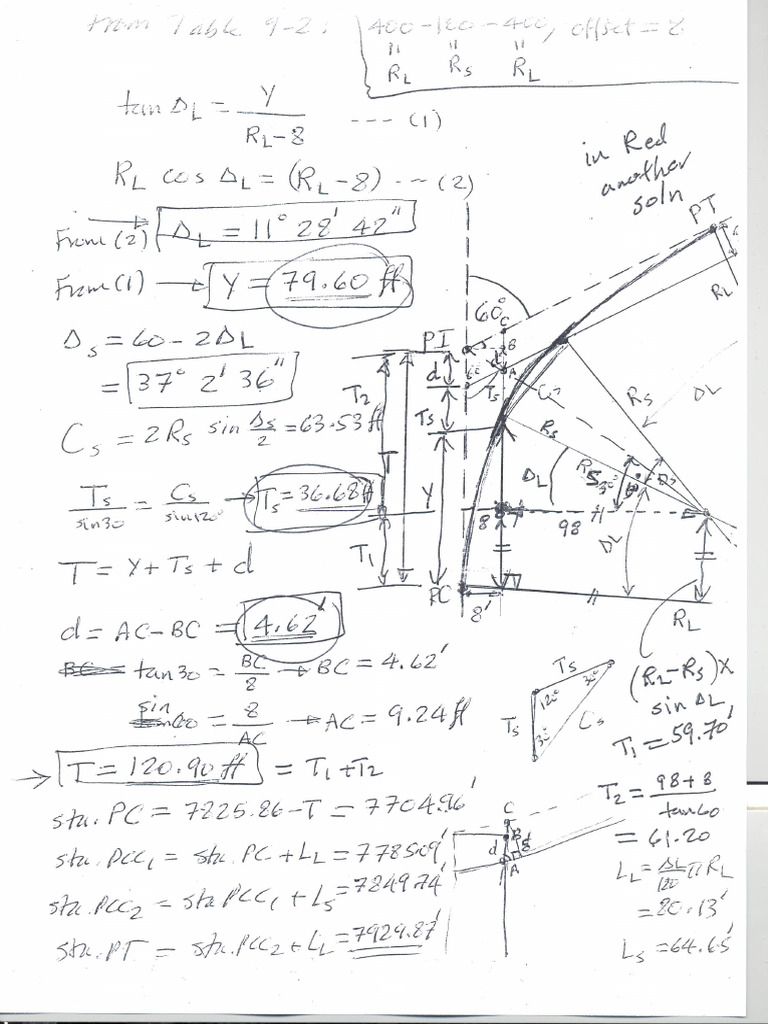 From Table 9-2: 400-100-400, offset = 8
" " "
RL Rs RL
tan ΔL = Y / (RL-8) ---- (1)
RL cos ΔL = (RL-8) --- (2)
From (2) ΔL = 11° 28' 42"
From (1) → Y = 79.60 ft
Δs = 60 - 2ΔL
= 37° 2' 36"
Cs = 2Rs sin Δs/2 = 63.53 ft
Ts/sin30 = Cs/sin120° → Ts = 36.68 ft
T = Y + Ts + d
d = AC - BC = 4.62'
tan30 = BC/8 → BC = 4.62'
sin60 = 8/AC → AC = 9.24 ft
→ T = 120.90 ft = T1 + T2
sta. PC = 7825.86 - T = 7704.96'
sta. PCC1 = sta. PC + LL = 7785.09'
sta. PCC2 = sta PCC1 + Ls = 7849.74'
sta. PT = sta. PCC2 + LL = 7929.87'
in Red
another
soln
PT
RL
60°
C
PI
B
d
A
Cs
T2
Ts
Ts
Rs
ΔL
T
Rs
ΔL
Y
8'
98
ΔL
T1
PC
8'
RL
(RL-Rs)×
sin ΔL
T1 = 59.70'
Ts
120°
30°
Ts
Cs
30°
T2 = (98+8)/tan60
= 61.20
LL = ΔL/180 π RL
= 80.13'
Ls = 64.65'
C
B
d
8
A